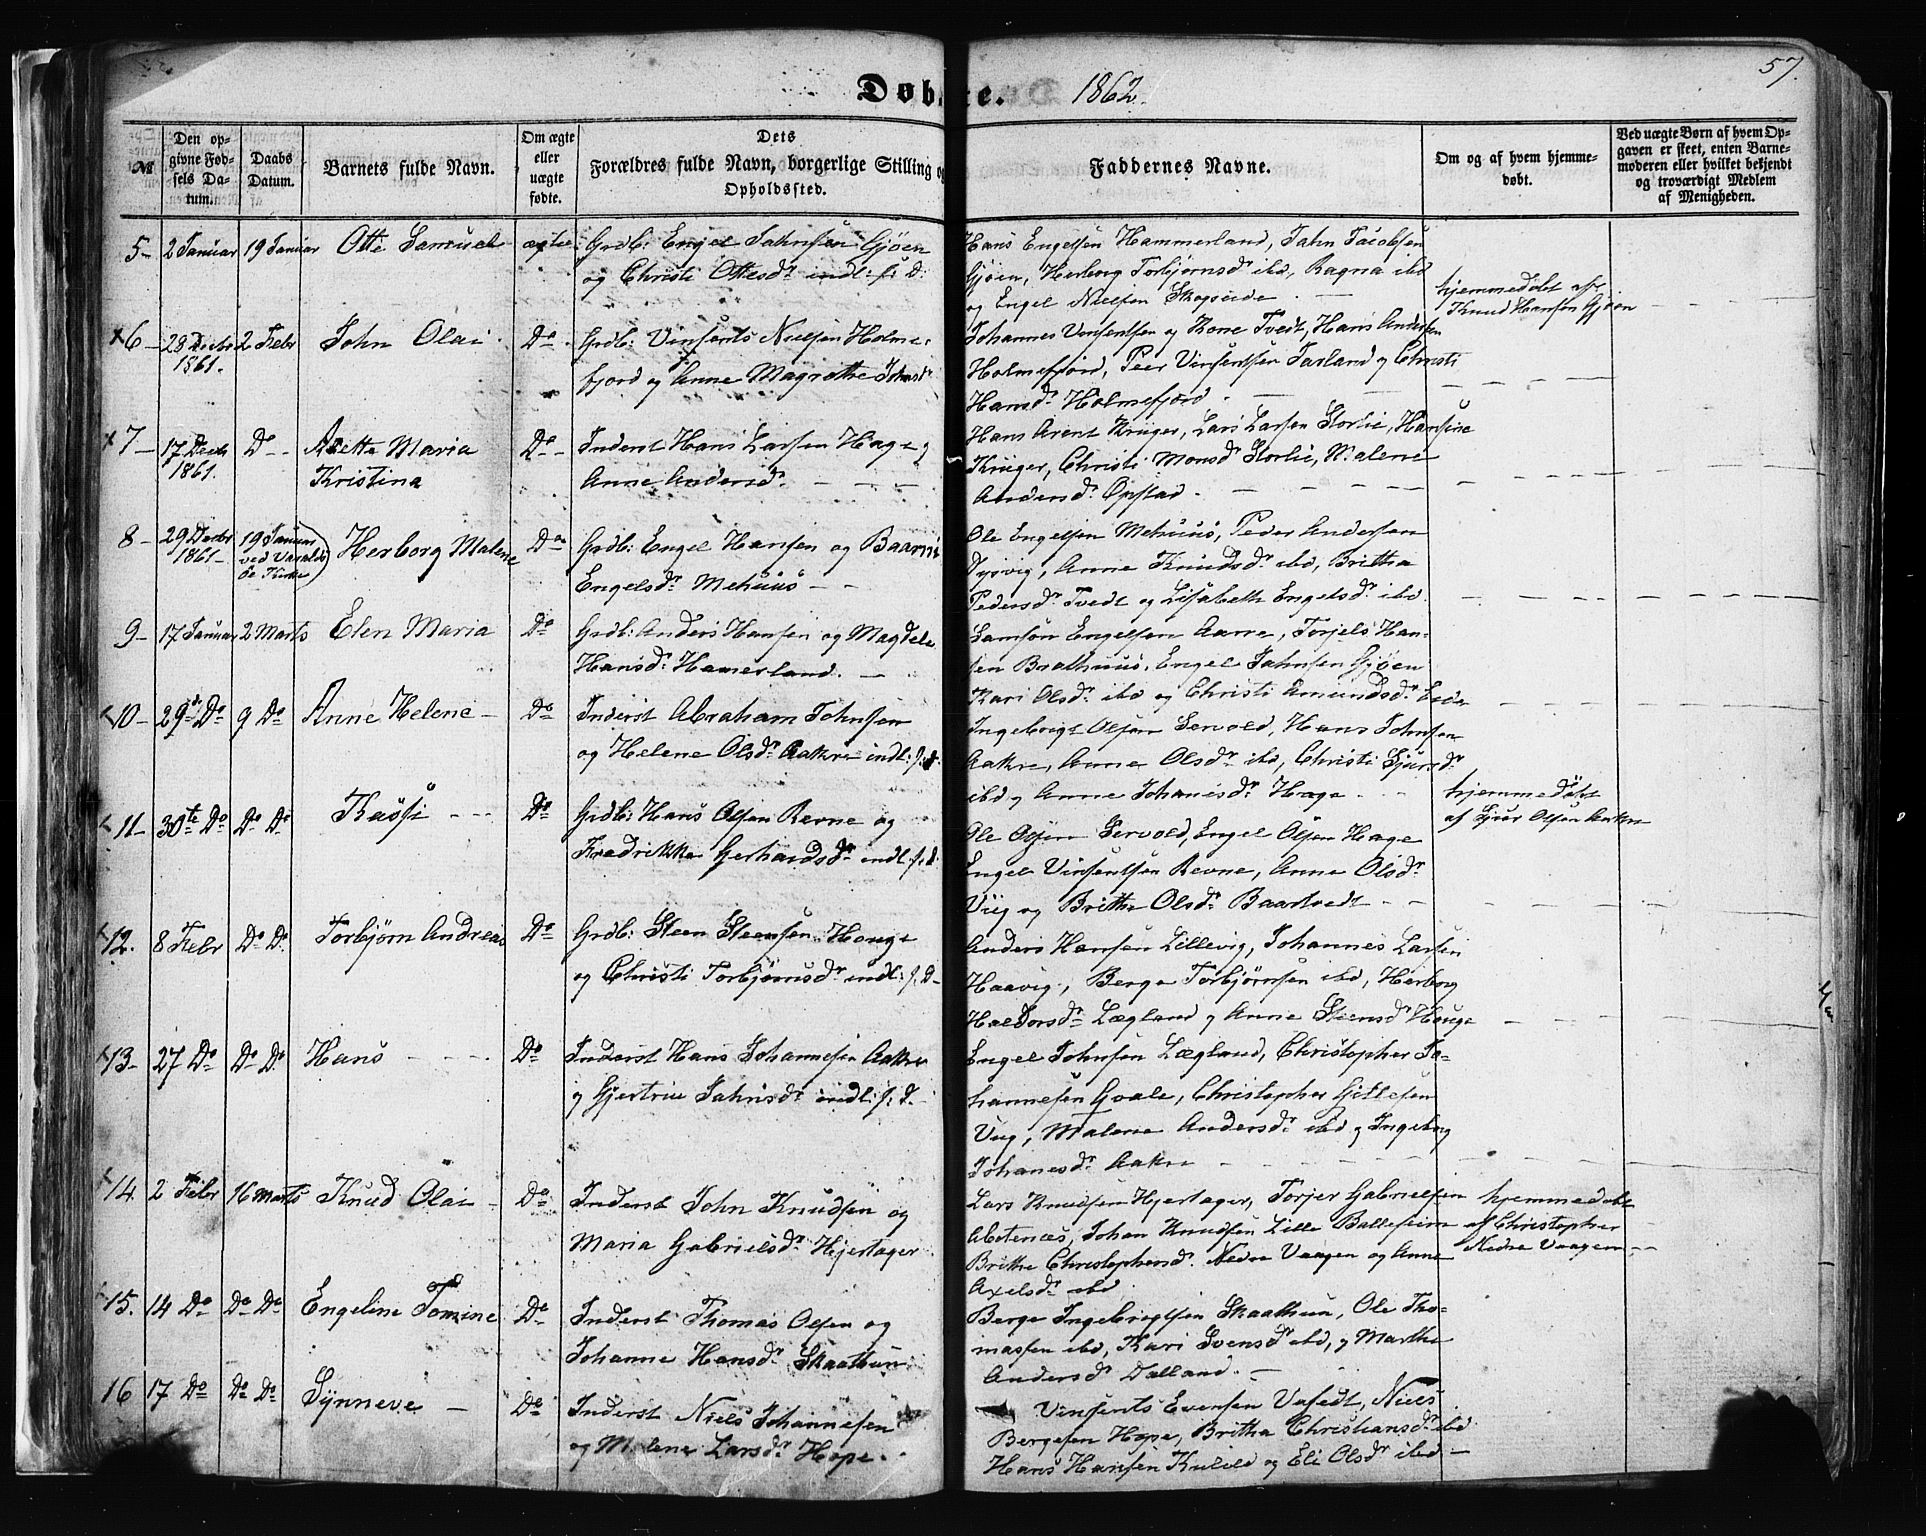 Døbte. 1862. 57.
№
Den opgivne Fødsels Datum.
Daabs Datum.
Barnets fulde Navn.
Om ægte eller uægte fødte.
Dets Forældres fulde Navn, borgerlige Stilling og Opholdssted.
Faddernes Navne.
Om og af hvem hjemmedøbt.
Ved uægte Børn af hvem Opgaven er skeet, enten Barnemoderen eller hvilket bekjendt og troværdigt Medlem af Menigheden.
5 – 2 Januar 19 Januar Otte Samuel ægte
Grdb: Engel Jahnsen Gjøen
og Christi Ottesdr. indl: f: D:
Hans Engelsen Hammerland, Jahn Jacobsen
Gjøen, Herborg Torbjørnsdr ibd, Ragna ibd
og Engel Nielsen Skogseide
hjemmedøbt af
Knud Hansen Gjøen
x 6 – 23 Decbr 1861. 2 Febr John Olai Do
Grdb: Vinsents Nielsen Holme-
fjord og Anne Magrethe Johnsdr
Johannes Vinsentsen og Kone Tvedt, Hans Andersen
Holmefjord, Peer Vinsentsen Tarland og Christi
Hansdr Holmefjord
x 7 – 17 Decb 1861. Do Anette Maria
Kristina Do
Inderst Hans Larsen Hage og
Anne Andersdr.
Hans Arent Krüger, Lars Larsen Storlie, Hansine
Krüger, Christi Monsdr Storlie, Malene
Andersdr. Opstad
8 – 29 Decbr 1861 – 19 Januar ved Varalds
Øe Kirke Herborg Malene Do
Grdb: Engel Hansen og Baarni
Engelsdr. Mehuus
Ole Engelsen Mehuus, Peder Andersen
Dysvig, Anne Knudsdr ibd, Britha
Pedersdr Tvedt og Lisabeth Engelsdr ibd
9 – 17 Januar 2 Marts Elen Maria Do
Grdb: Anders Hansen og Magdele
Hansdr. Hamerland.
Samson Engelsen Aarre, Torjels Han-
sen Bralhuus, Engel Jahnsen Gjøen
Kari Olsdr ibd og Christi Amundsdr
x 10 – 29de Do 9 Do Anne Helene Do
Inderst Abraham Johnsen
og Helene Olsdr Aakre indl: f: d:
Ingebrigt Olsen Servold, Hans Johnsen
Aakre, Anne Olsdr ibd, Christi Sjursdr
ibd og Anne Johanesdr Hage
x 11 – 30te Do Do Do Kasfi Do
Grdb: Hans Olsen Revne og
Fredrikke Gerhardsdr indl: f: d:
Ole Olsen Servold, Engel Olsen Hage
Engel Vinsentsen Revne, Anne Olsdr
Viig og Brithe Olsdr. Baartvedt
hjemmedøbt
af Sjur Olsen Aakre
x 12. 8 Febr Do Do Torbjørn Andreas Do
Grdb: Steen Steensen Houge
og Christi Torbjørnsdr indl: f: D
Anders Hansen Lillevig, Johannes Larsen
Haavig, Berge Torbjørnsen ibd, Herborg
Haldorsdr Lægland og Anne Steensdr Houge
x 13 – 27 Do Do Do Hans Do
Inderst Hans Johannesen Aakre
og Gjertrue Jahnsdr indl: f: d.
Engel Johnsen Lægland, Christopher Jo-
hannesen Gvale, Christopher Gittesen
Viig, Malene Andersdr ibd og Ingeborg
Johanesdr Aakre
x 14. 2 Febr 16 Marts Knud Olai Do
Inderst John Knudsen og
Maria Gabrielsdr. Hjertager
Lars Knudsen Hjertager, Torjer Gabrielsen
Abotenæs, Johan Knudsen Lille Balleseim
Brithe Christophersd. Nedre Vaagen og Anne
Axelsdr ibd
hjemmedøbt
af Christopher
Nedre Vaagen
x 15. 14 Do Do Do Engeline Tomine Do
Inderst Thomas Olsen og
Johanne Hansdr. Skaathun
Berge Ingebrigtsen Skaathun, Ole Tho-
massen ibd, Kari Svensdr ibd, og Marthe
Andersdr Dalland.
16 17 Do Do Do Synneve Do
Inderst Niels Johannesen
og Malene Larsdr. Hope.
Vinsents Evensen Vafedt, Niels
Bergesen Hope, Britha Christiansdr ibd
Hans Hansen Kulild og Eli Olsdr ibd